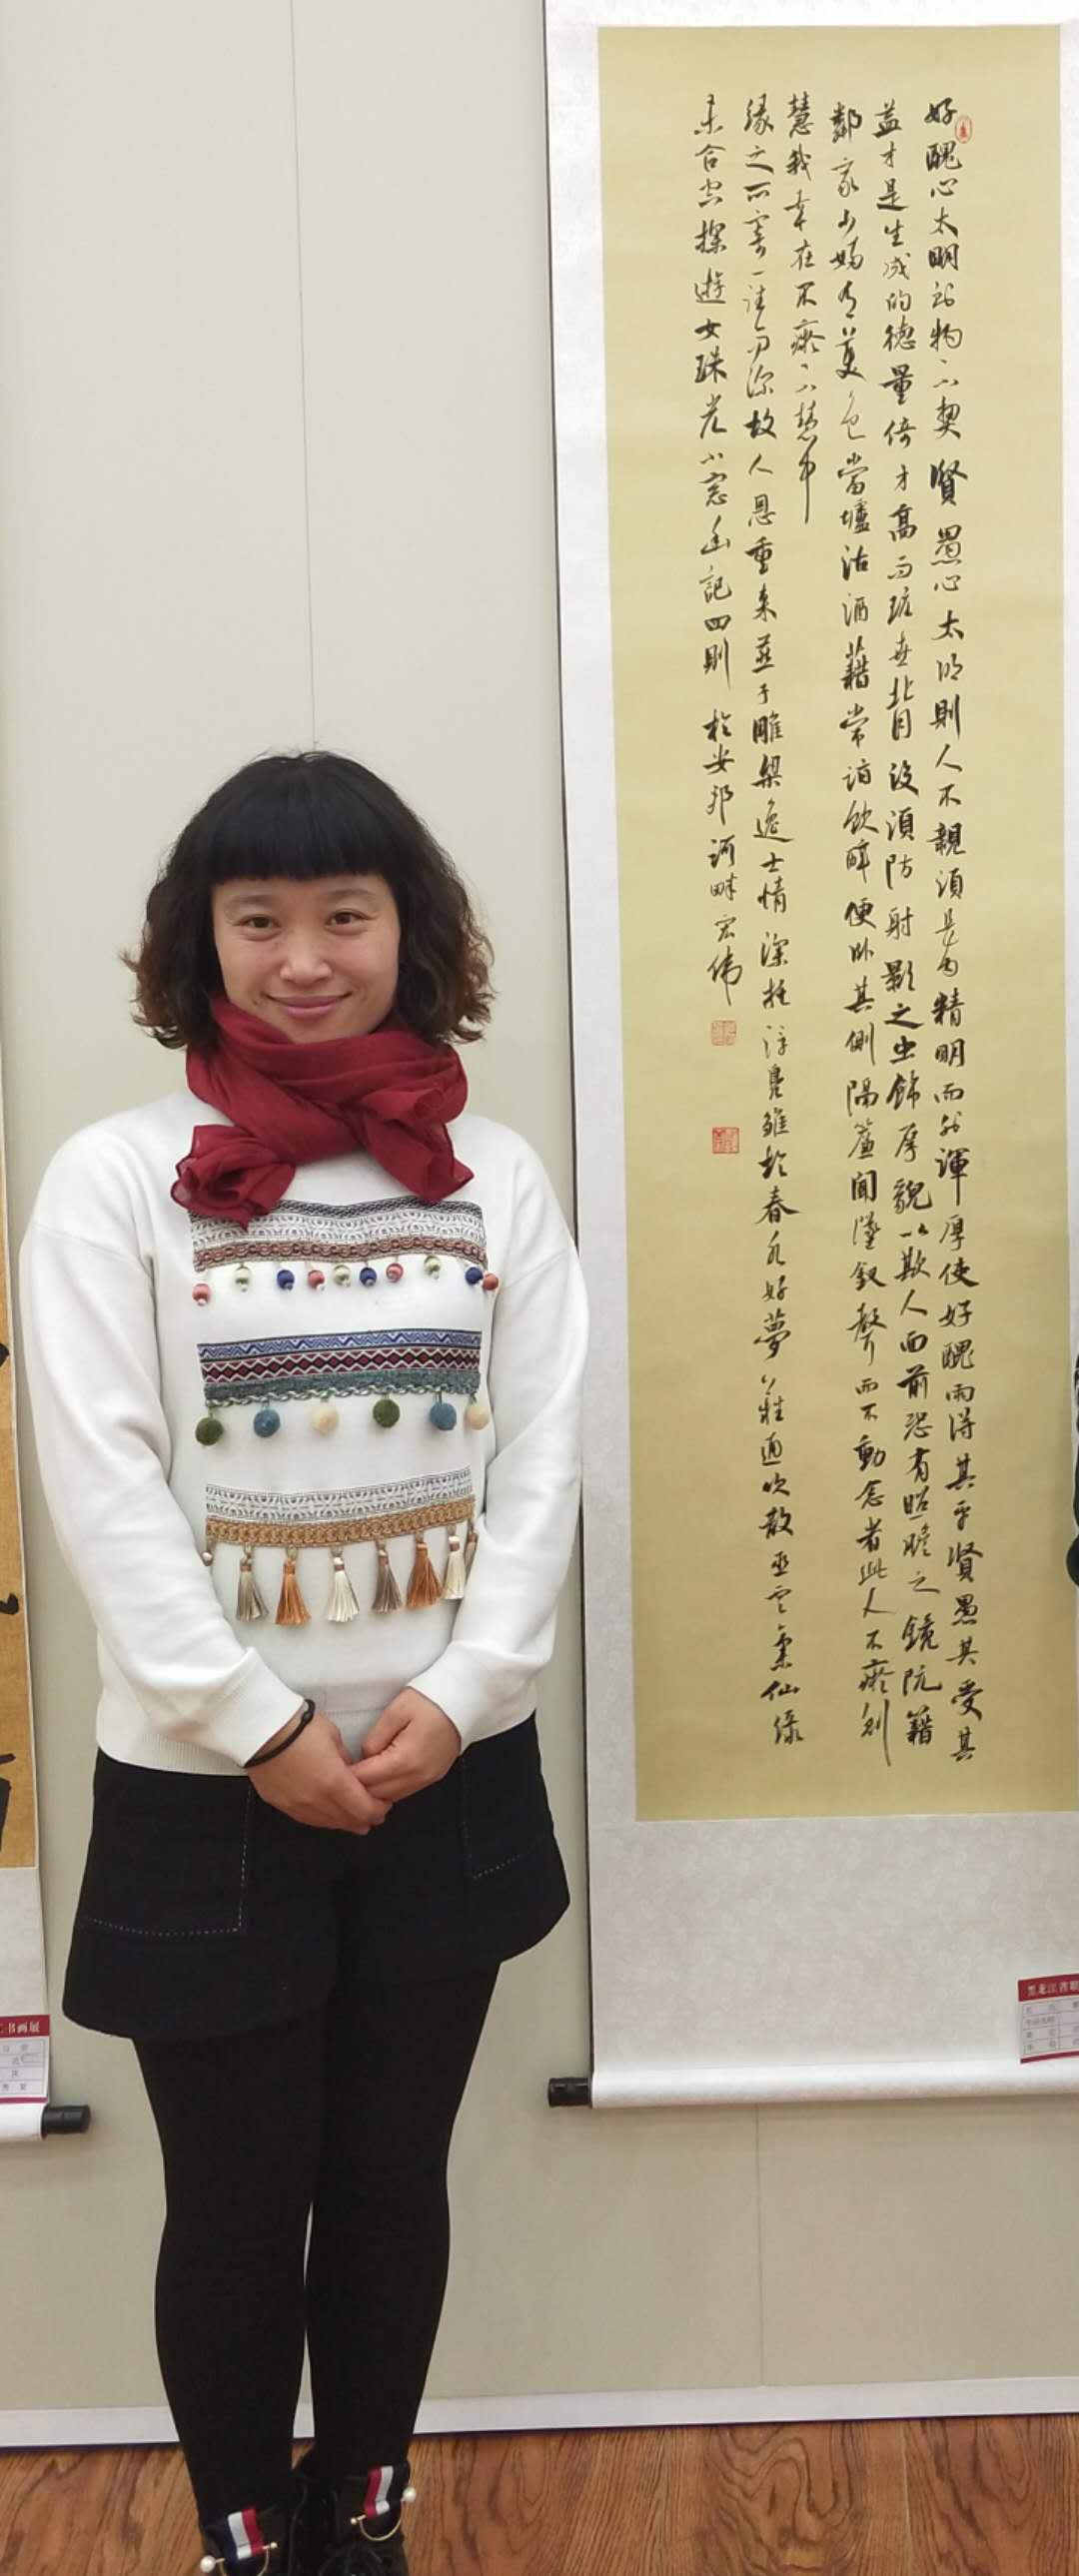 好醜心太明則物不契賢愚心太明則人不親須是內精明而外渾厚使好醜兩得其平賢愚共受其
益才是生成的德量倚才高而玩世背後須防射影之虫飾厚貌以欺人面前恐有照膽之鏡阮籍
鄰家少婦有美色當壚沽酒藉常詣飲醉便卧其側隔簾聞墜釵聲而不動念者此人不癡則
慧我幸在不癡不慧中
緣之所寄一往而深故人恩重來燕子雕梁逸士情深托鳧雛於春水好夢難通吹散巫雲氣仙緣
未合空探遊女珠光小窗幽記四則 於安邦河畔宏伟
书画展
黑龙江省职